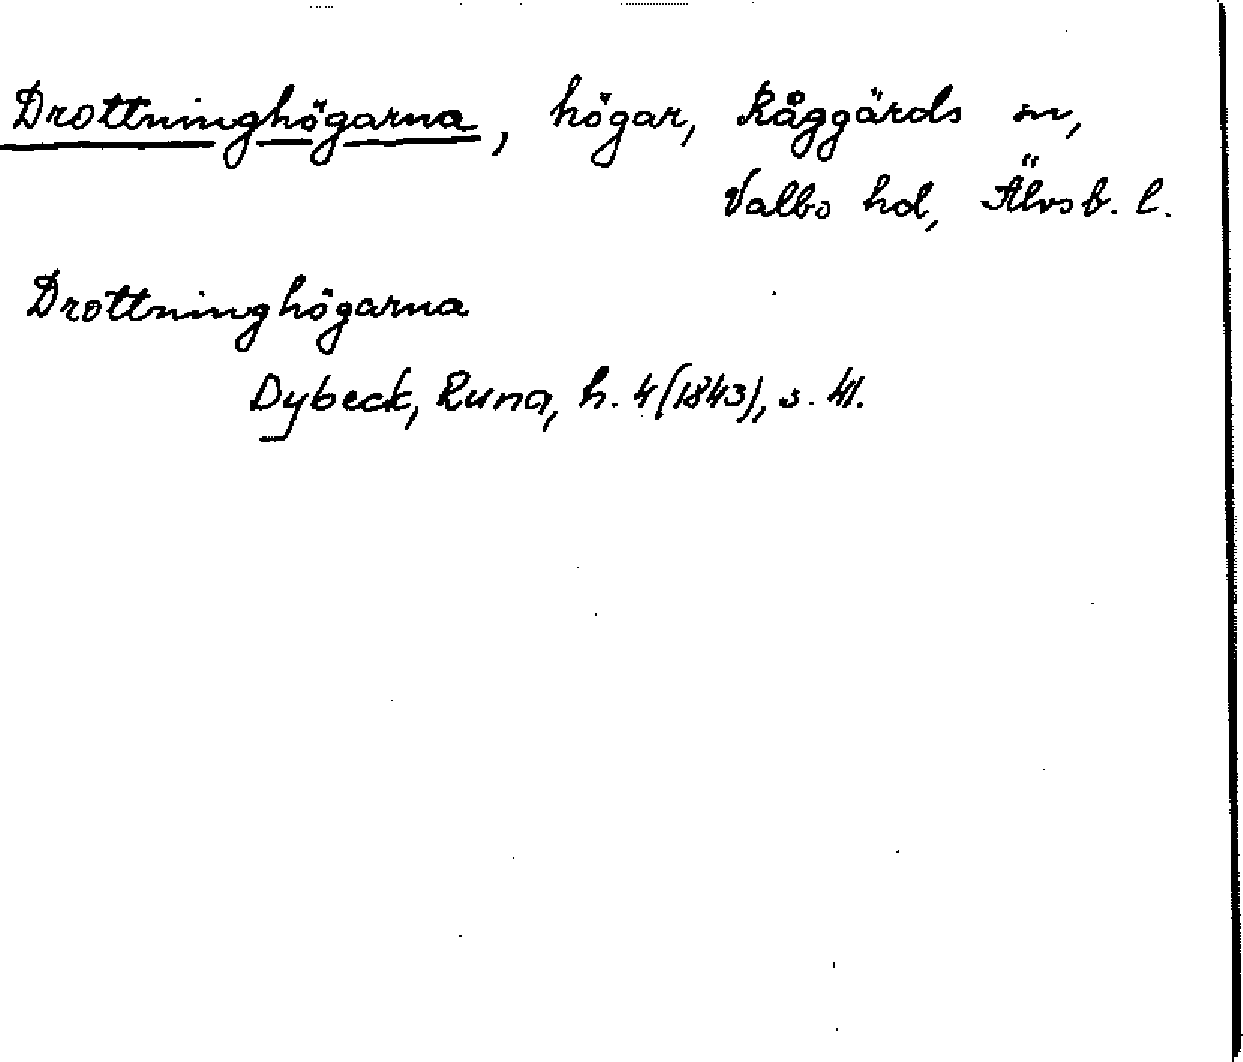 Drottninghögarna, högar, Råggärds sn,
Valbo hd, Älvsb. l.
Drottninghögarna
Dybeck, Runa, h. 4 (1843), s. 41.